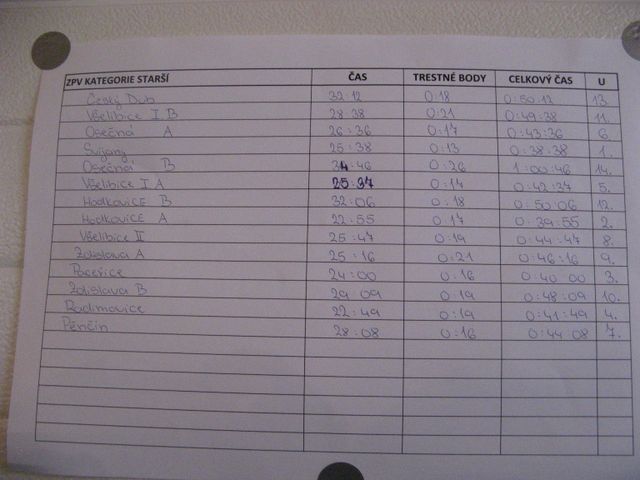 ZPV KATEGORIE STARŠÍ ČAS TRESTNÉ BODY CELKOVÝ ČAS U
Český Dub 32:12 0:18 0:50:12 13.
Všelibice I B 28 38 0:21 0:49:38 11.
Osečná A 26:36 0:17 0:43:36 6.
Svijany 25:38 0:13 0:38:38 1.
Osečná B 34:46 0:26 1:00:46 14.
Všelibice I A 25:37 0:14 0:42:37 5.
Hodkovice B 32:06 0:18 0:50 06 12.
Hodkovice A 22:55 0 17 0:39:55 2.
Všelibice II 25:47 0:19 0:44:47 8.
Zdislava A 25:16 0:21 0:46:16 9.
Paceřice 24:00 0:16 0:40 00 3.
Zdislava B 29 09 0:19 0:48:09 10.
Radimovice 22:49 0:19 0:41:49 4.
Pěnčín 28:08 0:16 0:44 08 7.